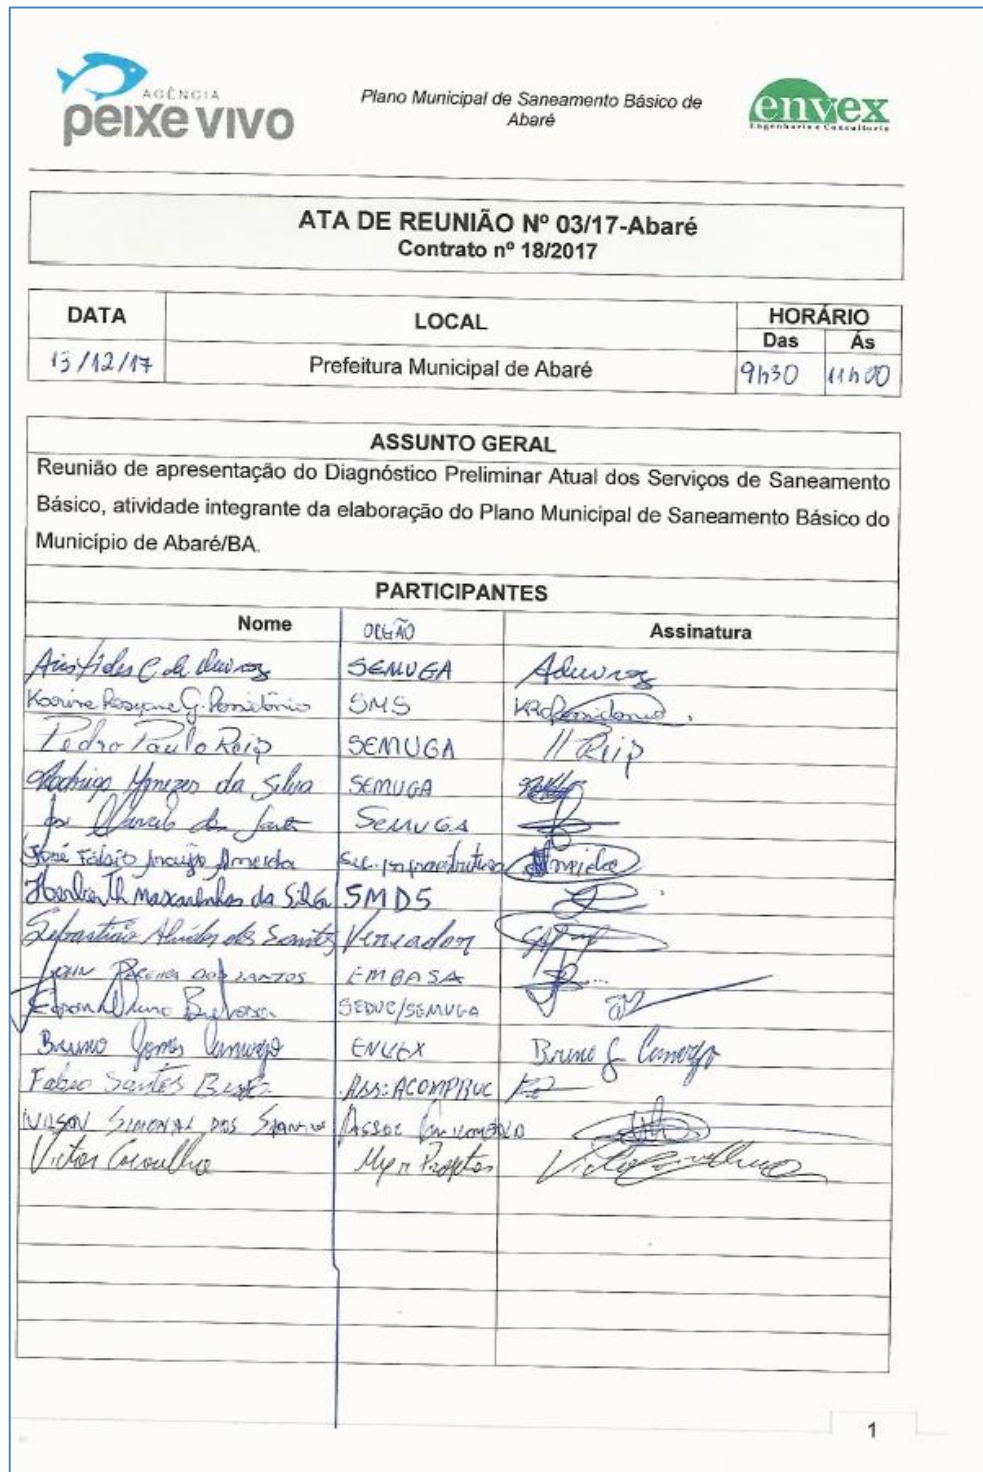 AGÊNCIA
peixe vivo
Plano Municipal de Saneamento Básico de
Abaré
envex
Engenharia e Consultoria
ATA DE REUNIÃO Nº 03/17-Abaré
Contrato nº 18/2017
DATA LOCAL HORÁRIO
Das Ás
13/12/17 Prefeitura Municipal de Abaré 9h30 11h00
ASSUNTO GERAL
Reunião de apresentação do Diagnóstico Preliminar Atual dos Serviços de Saneamento
Básico, atividade integrante da elaboração do Plano Municipal de Saneamento Básico do
Município de Abaré/BA.
PARTICIPANTES
Nome ORGÃO Assinatura
Aristides C de SEMUGA
Karine G. SMS
Pedro Paulo Reip SEMUGA Reip
Rodrigo Menezes da Silva SEMUGA
SEMUGA
José Araújo Almeida Sec. Almeida
Mascarenhas da Silva SMDS
Sebastião dos Santos Vereador
DOS SANTOS EMBASA
SEDUC/SEMUGA
Bruno Gomes Camargo ENVEX Bruno G Camargo
Fabio Santos Ass: ACOMPRUC
WILSON SIMONAL DOS Assoc
Victor Carvalho Projetos Victor Carvalho
1